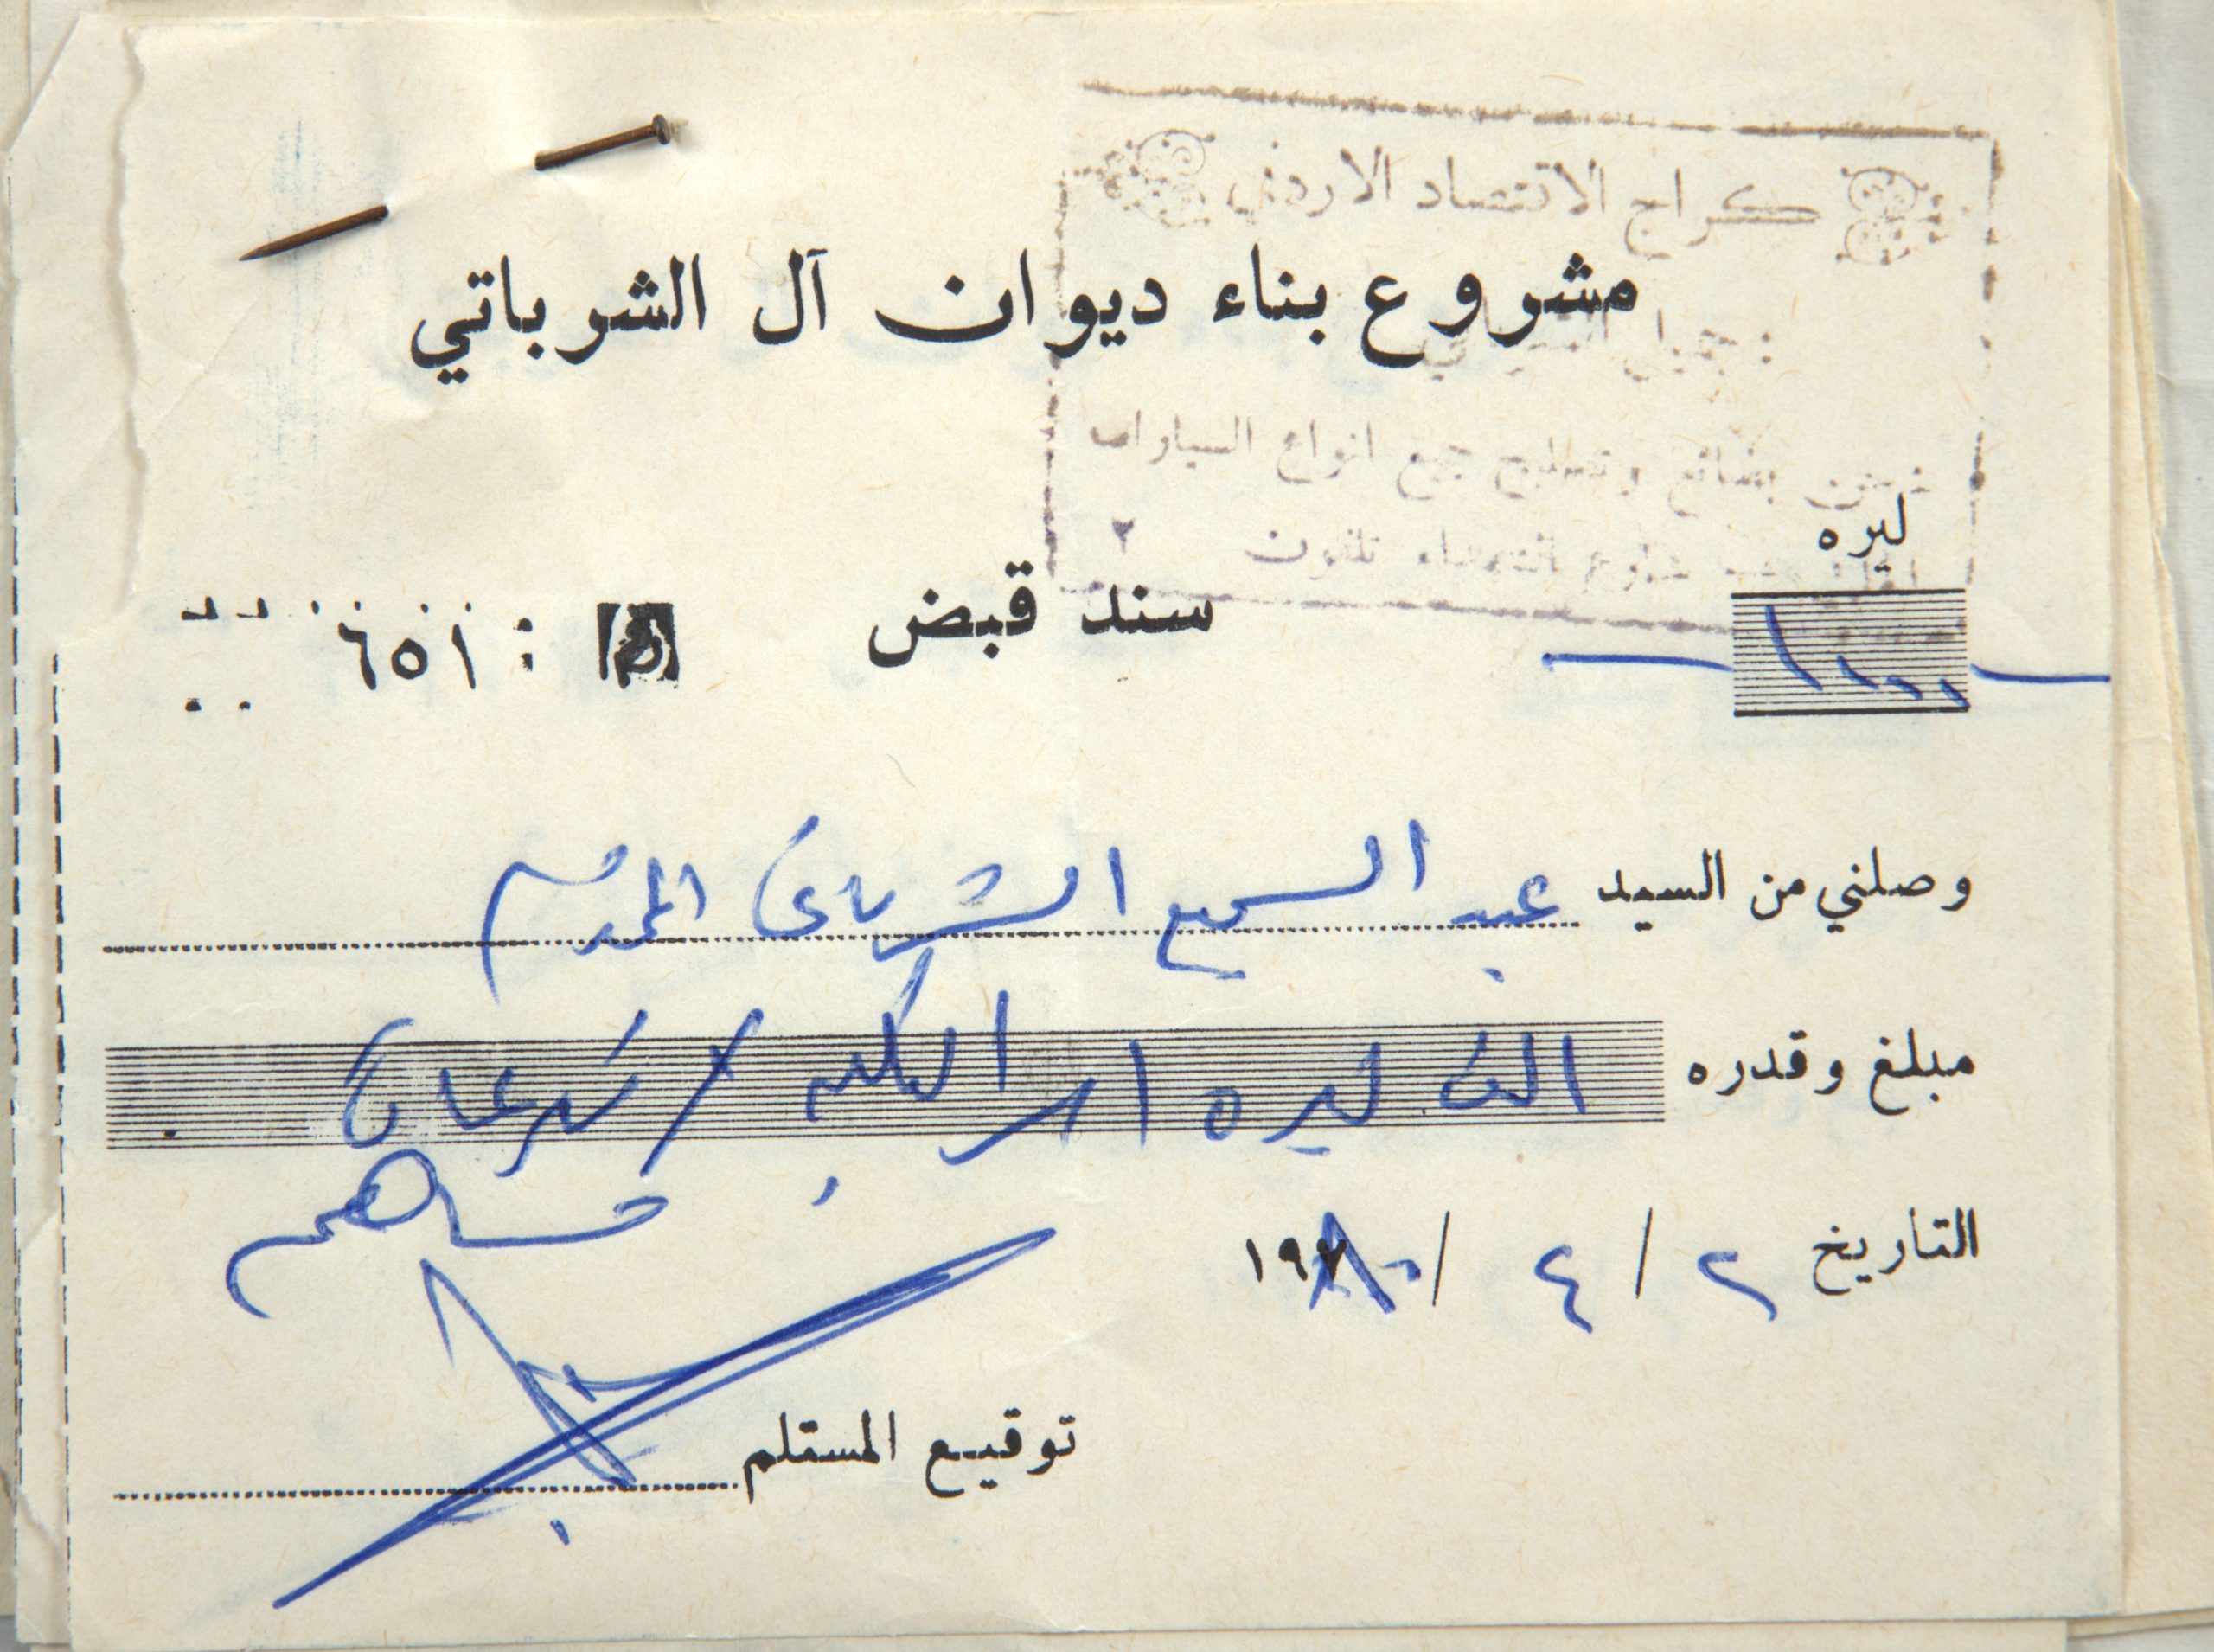 كراج الاقتصاد الاردني
مشروع بناء ديوان آل الشرباتي
جميل
بضائع وتصليح جميع انواع السيارات
تلفون ٢
ليره
سند قبض
٦٥١ :
١٠٠٠
وصلني من السيد عبد السميع الشرباتي المحترم
مبلغ وقدره الف ليره اسرائيليه / تبرعات
التاريخ ٢ / ٤ / ١٩٨٠
توقيع المستلم